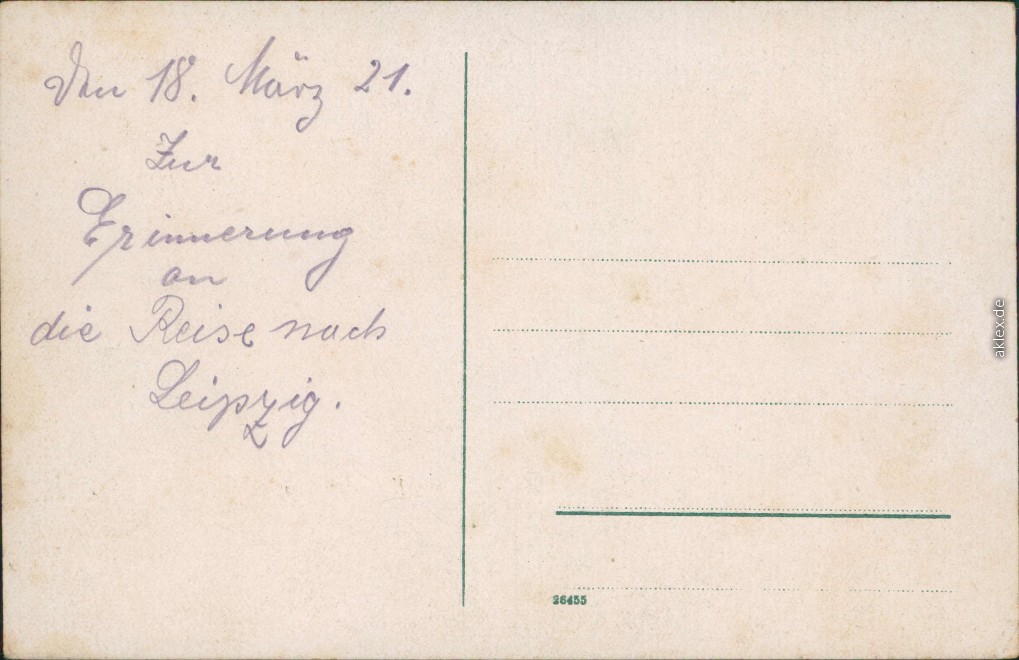 Den 18. März 21.
Zur
Erinnerung
an
die Reise nach
Leipzig.
26455
aklex.de